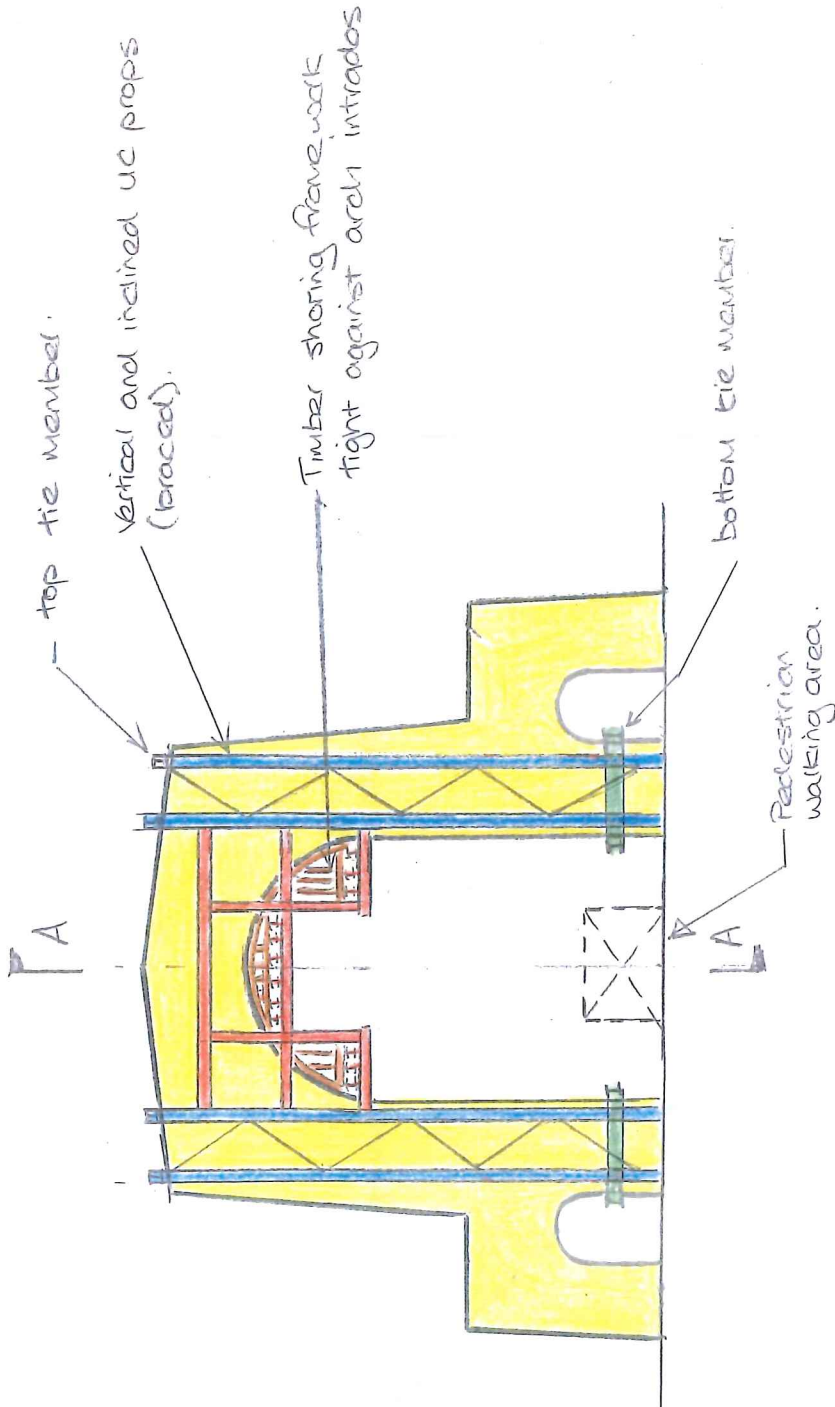 top tie member.
Vertical and inclined UC props
(braced).
Timber shoring framework
tight against arch intrados
A
A
bottom tie member.
Pedestrian
walking area.